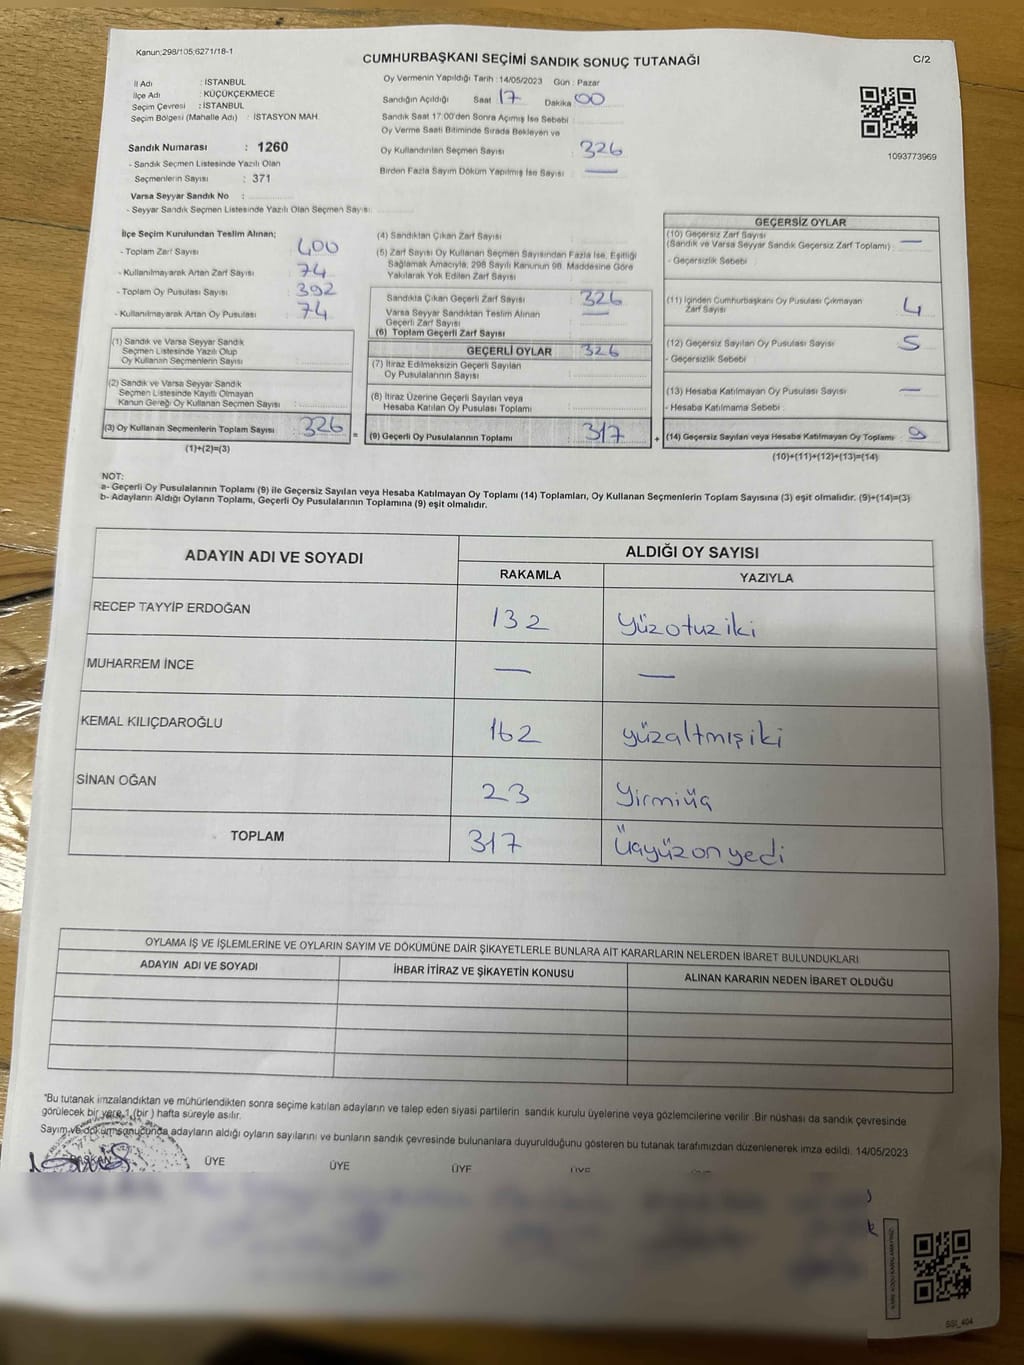 Kanun:298/105;6271/18-1
CUMHURBAŞKANI SEÇİMİ SANDIK SONUÇ TUTANAĞI
C/2
İl Adı : İSTANBUL
İlçe Adı : KÜÇÜKÇEKMECE
Seçim Çevresi : İSTANBUL
Seçim Bölgesi (Mahalle Adı) : İSTASYON MAH.
Oy Vermenin Yapıldığı Tarih : 14/05/2023 Gün : Pazar
Sandığın Açıldığı Saat 17 Dakika 00
Sandık Saat 17:00'den Sonra Açımış İse Sebebi :
Oy Verme Saati Bitiminde Sırada Bekleyen ve
Oy Kullandırılan Seçmen Sayısı : 326
Birden Fazla Sayım Döküm Yapılmış İse Sayısı : —
1093773969
Sandık Numarası : 1260
- Sandık Seçmen Listesinde Yazılı Olan
Seçmenlerin Sayısı : 371
Varsa Seyyar Sandık No :
- Seyyar Sandık Seçmen Listesinde Yazılı Olan Seçmen Sayısı:
İlçe Seçim Kurulundan Teslim Alınan;
- Toplam Zarf Sayısı : 400
- Kullanılmayarak Artan Zarf Sayısı : 74
- Toplam Oy Pusulası Sayısı : 392
- Kullanılmayarak Artan Oy Pusulası : 74
(1) Sandık ve Varsa Seyyar Sandık
Seçmen Listesinde Yazılı Olup
Oy Kullanan Seçmenlerin Sayısı :
(2) Sandık ve Varsa Seyyar Sandık
Seçmen Listesinde Kayıtlı Olmayan
Kanun Gereği Oy Kullanan Seçmen Sayısı :
(3) Oy Kullanan Seçmenlerin Toplam Sayısı : 326 =
(1)+(2)=(3)
(4) Sandıktan Çıkan Zarf Sayısı :
(5) Zarf Sayısı Oy Kullanan Seçmen Sayısından Fazla İse, Eşitliği
Sağlamak Amacıyla, 298 Sayılı Kanunun 98. Maddesine Göre
Yakılarak Yok Edilen Zarf Sayısı :
Sandıkta Çıkan Geçerli Zarf Sayısı : 326
Varsa Seyyar Sandıktan Teslim Alınan
Geçerli Zarf Sayısı : —
(6) Toplam Geçerli Zarf Sayısı
GEÇERLİ OYLAR 326
(7) İtiraz Edilmeksizin Geçerli Sayılan
Oy Pusulalarının Sayısı :
(8) İtiraz Üzerine Geçerli Sayılan veya
Hesaba Katılan Oy Pusulası Toplamı :
(9) Geçerli Oy Pusulalarının Toplamı : 317 +
GEÇERSİZ OYLAR
(10) Geçersiz Zarf Sayısı
(Sandık ve Varsa Seyyar Sandık Geçersiz Zarf Toplamı) : —
- Geçersizlik Sebebi :
(11) İçinden Cumhurbaşkanı Oy Pusulası Çıkmayan
Zarf Sayısı : 4
(12) Geçersiz Sayılan Oy Pusulası Sayısı : 5
- Geçersizlik Sebebi
(13) Hesaba Katılmayan Oy Pusulası Sayısı : —
- Hesaba Katılmama Sebebi :
(14) Geçersiz Sayılan veya Hesaba Katılmayan Oy Toplamı : 9
(10)+(11)+(12)+(13)=(14)
NOT:
a- Geçerli Oy Pusulalarının Toplamı (9) ile Geçersiz Sayılan veya Hesaba Katılmayan Oy Toplamı (14) Toplamları, Oy Kullanan Seçmenlerin Toplam Sayısına (3) eşit olmalıdır. (9)+(14)=(3)
b- Adayların Aldığı Oyların Toplamı, Geçerli Oy Pusulalarının Toplamına (9) eşit olmalıdır.
ADAYIN ADI VE SOYADI ALDIĞI OY SAYISI
RAKAMLA YAZIYLA
RECEP TAYYİP ERDOĞAN 132 Yüzotuziki
MUHARREM İNCE — —
KEMAL KILIÇDAROĞLU 162 yüzaltmışiki
SİNAN OĞAN 23 Yirmiüç
TOPLAM 317 Üçyüzonyedi
OYLAMA İŞ VE İŞLEMLERİNE VE OYLARIN SAYIM VE DÖKÜMÜNE DAİR ŞİKAYETLERLE BUNLARA AİT KARARLARIN NELERDEN İBARET BULUNDUKLARI
ADAYIN ADI VE SOYADI İHBAR İTİRAZ VE ŞİKAYETİN KONUSU ALINAN KARARIN NEDEN İBARET OLDUĞU
"Bu tutanak imzalandıktan ve mühürlendikten sonra seçime katılan adayların ve talep eden siyasi partilerin sandık kurulu üyelerine veya gözlemcilerine verilir .Bir nüshası da sandık çevresinde
görülecek bir yere 1 (bir ) hafta süreyle asılır.
Sayım ve döküm sonucunda adayların aldığı oyların sayılarını ve bunların sandık çevresinde bulunanlara duyurulduğunu gösteren bu tutanak tarafımızdan düzenlenerek imza edildi. 14/05/2023
BAŞKAN ÜYE ÜYE ÜYE ÜYE
SSI_404